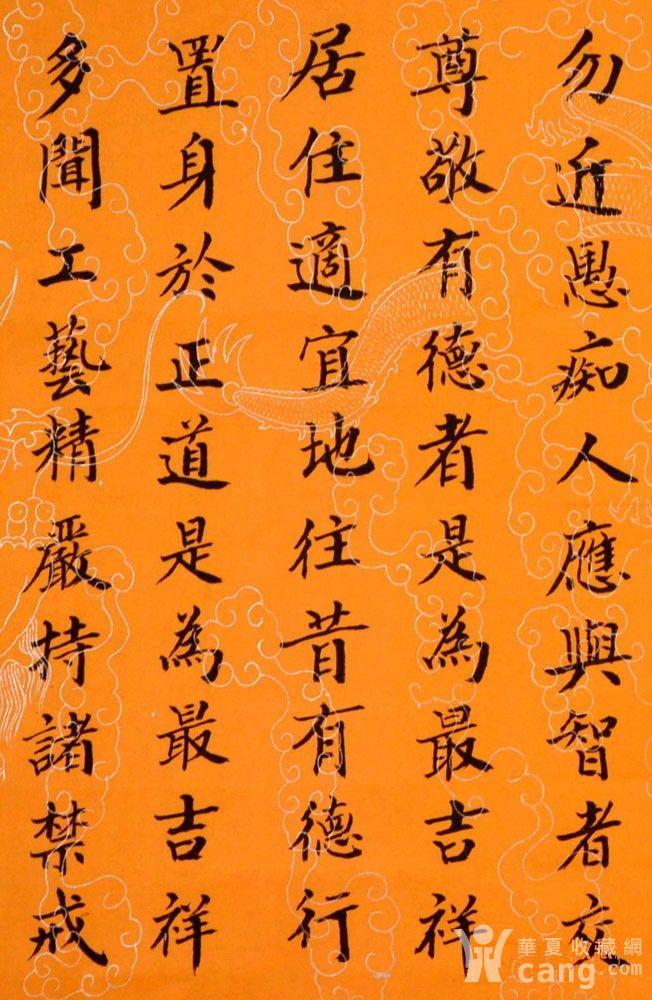 勿近愚癡人應與智者交
尊敬有德者是為最吉祥
居住適宜地往昔有德行
置身於正道是為最吉祥
多聞工藝精嚴持諸禁戒
華夏收藏網
cang.com